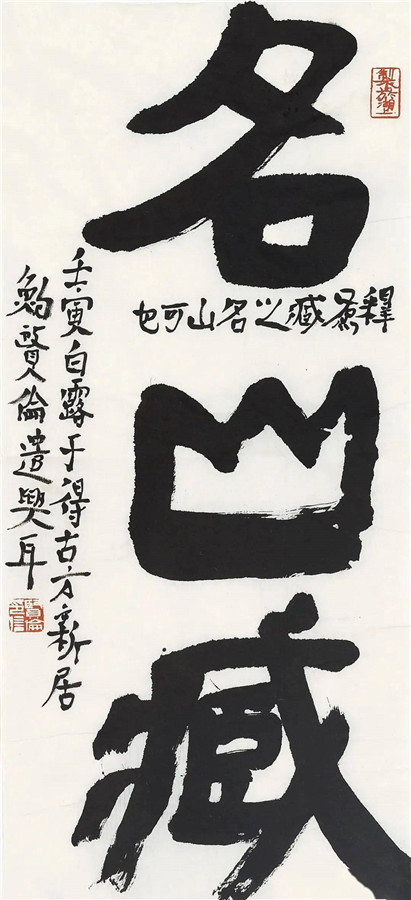 名山藏
釋藏之名山可也
壬寅白露于得古方新居
賢倫遣興耳